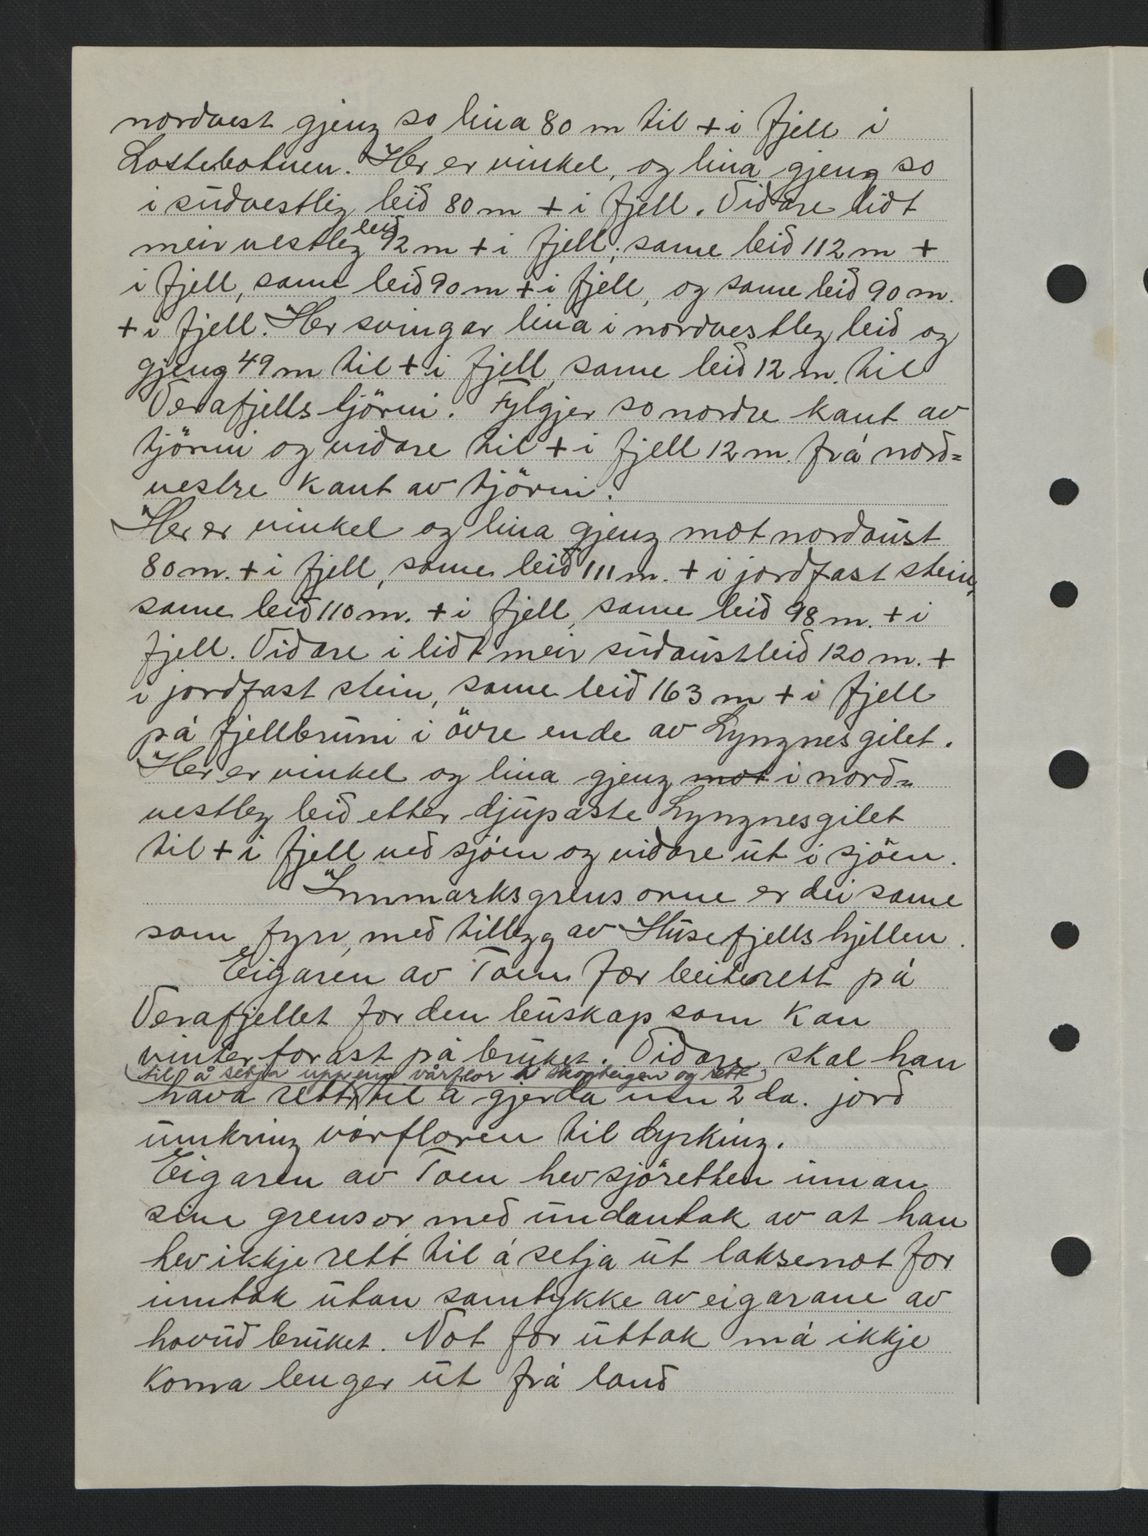 nordvest gjeng so lina 80 m til + i fjell i
Lostebotnen. Her er vinkel, og lina gjeng so
i sudvestleg leid 80 m + i fjell. Vidare lidt
meir vestleg leid 92 m + i fjell, same leid 112 m +
i fjell, same leid 90 m + i fjell, og same leid 90 m.
+ i fjell. Her svingar lina i nordvestleg leid og
gjeng 49 m til + i fjell, same leid 12 m. til
Verafjellstjörni. Fylgjer so nordre kant av
tjörni og vidare til + i fjell 12 m. frá nord=
vestre kant av tjörni.
Her er vinkel og lina gjeng mot nordaust
80 m. + i fjell, same leid 111 m. + i jordfast stein,
same leid 110 m. + i fjell, same leid 98 m. + i
fjell. Vidare i lidt meir sudaustleid 120 m. +
i jordfast stein, same leid 163 m + i fjell
på fjellbruni i övre ende av Lyngnesgilet.
Her er vinkel og lina gjeng mot i nord=
vestleg leid etter djupaste Lyngnesgilet
til + i fjell ved sjöen og vidare ut i sjöen.
Innmarksgrensorne er dei same
som fyrr, med tillegg av Husefjellshjellen.
Eigaren av Toen fær beiterett på
Verafjellet for den buskap som kan
vinterforast på bruket. Vidare skal han
(til å setja uppein vårflor i skogteigen og rett)
hava rett til å gjerda inn 2 da. jord
umkring vårfloren til dyrking.
Eigaren av Toen hev sjöretten innan
sine grensor, med undantak av at han
hev ikkje rett til å setja ut laksenot for
inntak utan samtykke av eigarane av
hovudbruket. Not for uttak må ikkje
koma lenger ut frå land